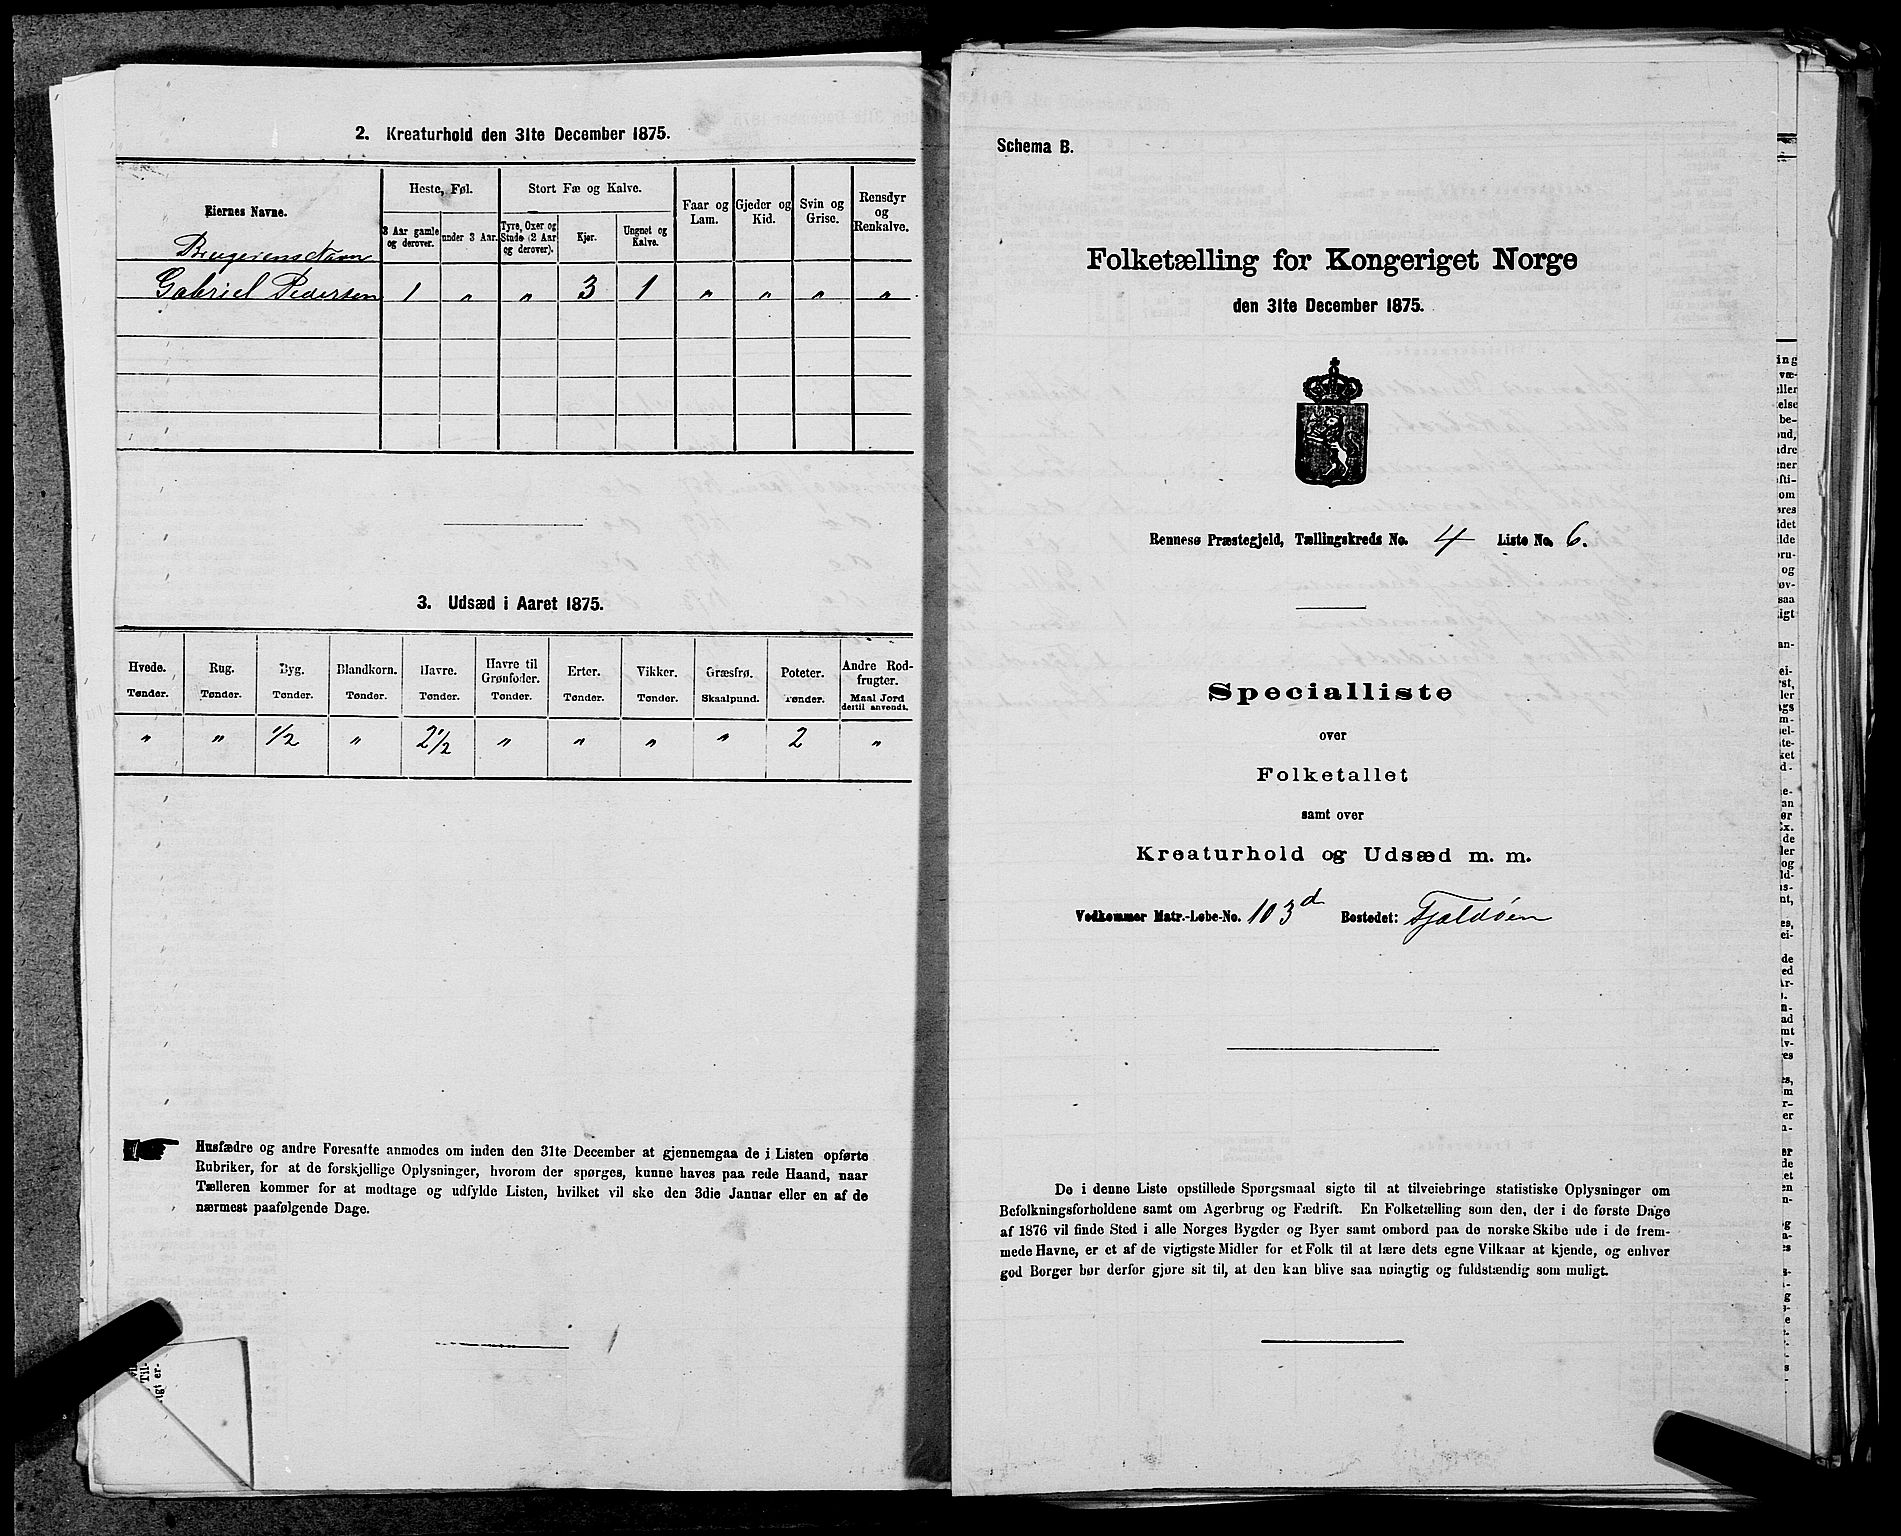 2. Kreaturhold den 31te December 1875.
Eiernes Navne.
Heste, Føl.
Stort Fæ og Kalve.
Faar og Lam.
Gjeder og Kid.
Svin og Grise.
Rensdyr og Renkalve.
3 Aar gamle og derover.
under 3 Aar.
Tyre, Oxer og Stude (2 Aar og derover).
Kjør.
Ungnet og Kalve.
Brugerens Navn
Gabriel Pedersen 1 " " 3 1 " " " "
3. Udsæd i Aaret 1875.
Hvede. Rug. Byg. Blandkorn. Havre. Havre til Grønfoder. Erter. Vikker. Græsfrø. Poteter. Andre Rodfrugter.
Tønder. Tønder. Tønder. Tønder. Tønder. Tønder. Tønder. Tønder. Skaalpund. Tønder. Maal Jord dertil anvendt.
" " 1/2 " 2 1/2 " " " " 2 "
Husfædre og andre Foresatte anmodes om inden den 31te December at gjennemgaa de i Listen opførte
Rubriker, for at de forskjellige Oplysninger, hvorom der spørges, kunne haves paa rede Haand, naar
Tælleren kommer for at modtage og udfylde Listen, hvilket vil ske den 3die Januar eller en af de
nærmest paafølgende Dage.
Schema B.
Folketælling for Kongeriget Norge
den 31te December 1875.
Rennesø Præstegjeld, Tællingskreds No. 4 Liste No. 6.
Specialliste
over
Folketallet
samt over
Kreaturhold og Udsæd m. m.
Vedkommer Matr.-Løbe-No. 103d Bostedet: Fjeldøen
De i denne Liste opstillede Spørgsmaal sigte til at tilveiebringe statistiske Oplysninger om
Befolkningsforholdene samt om Agerbrug og Fædrift. En Folketælling som den, der i de første Dage
af 1876 vil finde Sted i alle Norges Bygder og Byer samt ombord paa de norske Skibe ude i de frem-
mede Havne, er et af de vigtigste Midler for et Folk til at lære dets egne Vilkaar at kjende, og enhver
god Borger bør derfor gjøre sit til, at den kan blive saa nøiagtig og fuldstændig som muligt.